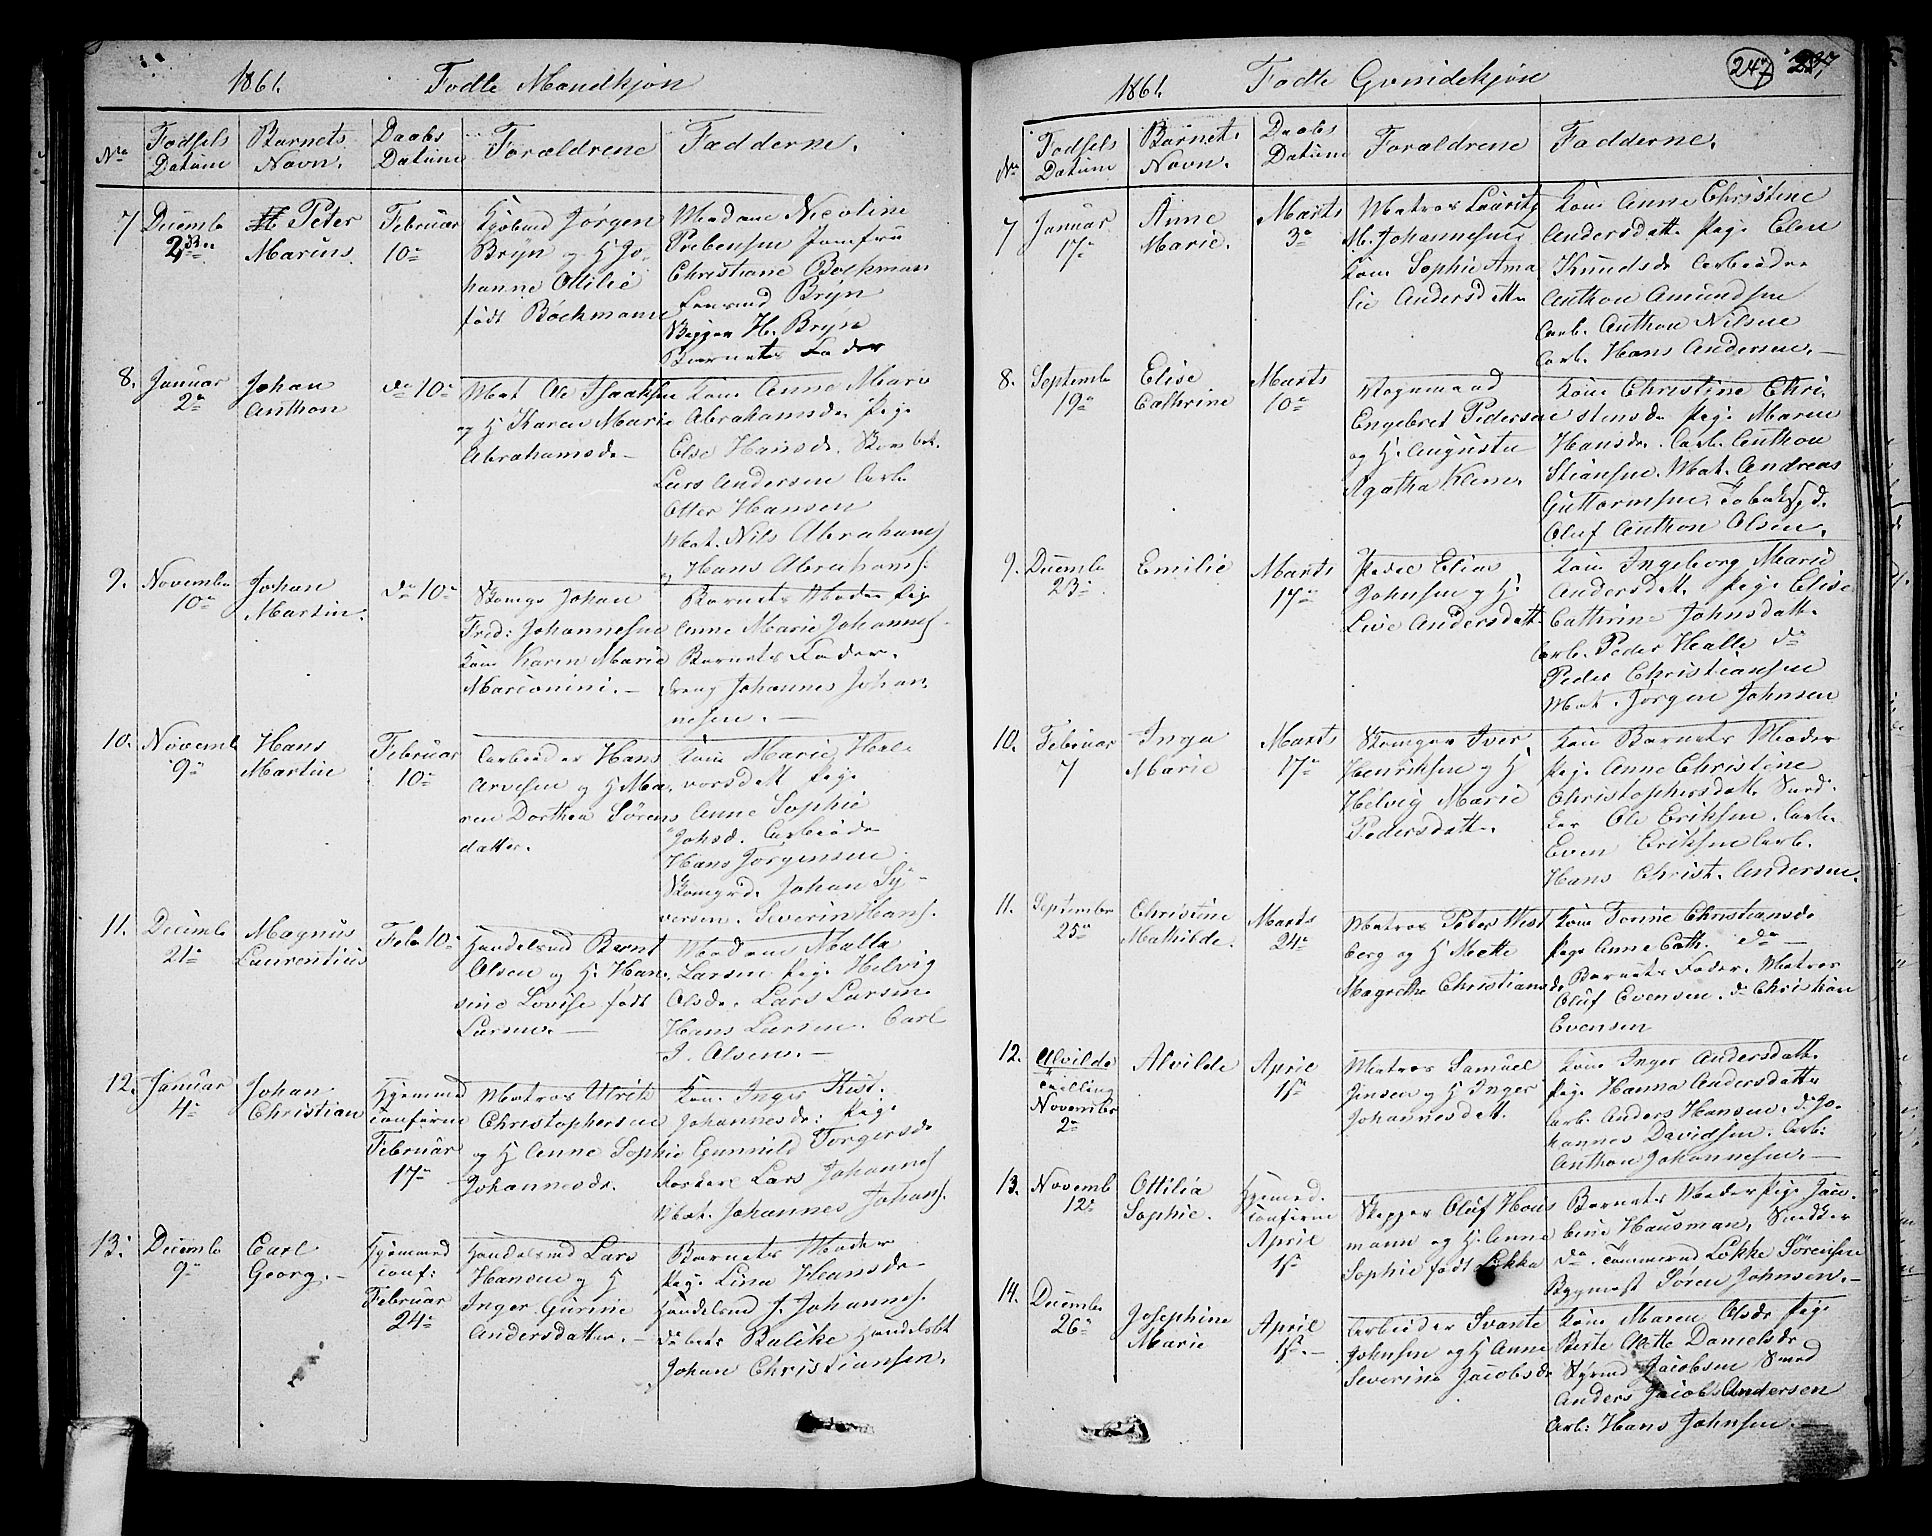 1861. Fødte Mandkjøn
No
Fødsels Datum
Barnets Navn.
Daabs Datum
Forældrene
Fadderne.
7 Decembr
Peter
Februar
Jørgen
Madame Nicoline
Marius
10de
Bryn og H Jo-
Prebensen Jomfru
hanne Ottilie
Christiane Bockman
født Bockmann
Bryn
Skipper H. Bryn
Barnets Fader
8. Januar
Johan
do 10de
Mat Ole Isaaksen
Kone Anne Marie
2de
Anthon
og H Karen Marie
Abrahamsdr Pige
Abrahamsdr
Else Hansdr.
Lars Andersen Arb.
Otter Hansen
Mat. Nils Abrahams
og Hans Abrahams.
9. Novembr
Johan
do 10de
Skomgr Johan
Barnets Moder Pige
10de
Martin.
Fred: Johannesen
Anne Marie Johannes.
Kone Karen Marie
Barnets Fader.
Marionini.
dreng Johannes Johan
nesen.
10. Novemb
Hans
Februar
Arbeider Hans
Kone Marie Hal-
9de
Martin
10de
Arvesen og H Ma-
vorsdatt Pige
ren Dorthea Sørens
Anne Sophie
datter.
Johsd. Arbeider
Hans Jørgensen
Skomgrd. Johan Sy-
versen. Severin Hans.
11. Decembr
Magnus
Feb 10de
Handelsmd Bernt
Madame Malla
21de
Laurentius
Olsen og H. Han-
Larsen Pige Helvig
sine Lovise født
Olsdr. Lars Larsen
Larsen.
Hans Larsen. Carl
J. Olsen.
12. Januar
Johan
Hjemmed
Matros Ulrik
Kone Inger Krist.
4de
Christian
confirm
Christophersen
Johannesdr: Pige
Februar
og H Anne Sophie
Gunnild Torgersdr
17de
Johannesdr.
Lars Johannes
Mat. Johannes Johans.
13. Decembr
Carl
Hjemmed
Handelsmd Lars
Barnets Moder
9de
Georg.
conf:
Hansen og H
Pige Lina Hansdr
Februar
Inger Gurine
Handelsmd J. Johannes.
24de
Andersdatter.
Balike Handelsbt
Johan Christiansen.
1861. Fødte Qvindekjøn
247
237
No
Fødsels Datum
Barnets Navn.
Daabs Datum
Forældrene
Fadderne.
7 Januar
Anne
Marts
Matros Laurits
Kone Anne Christine
17de
Marie.
3de
M. Johannesen
Andersdatt. Pige Elen
Kone Sophie Ama
Knudsdr Arbeider
lie Andersdatter
Anthon Amundsen
Arb. Anthon Nilsen
Arb. Hans Andersen.
8. Septemb
Elise
Marts
Vognmand
Kone Christine Chri-
19de
Cathrine
10de
Engebret Pedersen
stensdr Pige Maren
og H. Augusta
Hansdr. Arb. Anthon
Agatha Klem.
Stiansen. Mat. Andreas
Guttormsen.
Oluf Anthon Olsen.
9. Decemb
Emilie
Marts
Elias
Kone Ingeborg Marie
23de
17de
Johnsen og H.
Andersdatt. Pige Elise
Live Andersdatt
Cathrine Johnsdatt.
Arb. Peder Halle do
Peder Christiansen
Mat. Jørgen Johnsen
10. Februar
Inga
Marts
Skomgr Iver
Kone Barnets Moder
7
Marie
17de
Henriksen og H
Pige Anne Christine
Helvig Marie
Christophersdatt. Sned-
Pedersdatt.
ker Ole Eriksen. Arb.
Even Eriksen Arb.
Hans Christ. Andersen.
11. September
Christine
Marts
Matros Peter West
Kone Tonnie Christiansdr
25de
Mathilde.
24de
berg og H Mette
Pige Anne Cath. do
Magrethe Christiansdr
Barnets Fader. Matros
Oluf Evensen. do Christian
Evensen
12. Alvilde
Alvilde
April
Matros Samuel
Kone Inger Andersdatt.
Tvilling
1ste
Jensen og H Inger
Pige Hanna Andersdatt
November
Johannesdatt.
Arb. Anders Hansen. do Jo-
2de
hannes Davidsen. Arb:
Anthon Johannesen.
13. Novemb
Ottilia
Hjemmed.
Skipper Oluf Haus
Barnets Moder Pige Jaco-
12te
Sophie.
confirm
mann og H. Anne
bine Hausman, Snedker
April
Sophie født Løkke
Løkke Sørensen
1ste
Bygmest Søren Johnsen.
14. Decembr
Josephine
April
Arbeider Svante
Kone Maren Olsdr Pige
26de
Marie
1ste
Johnsen og H Anne
Berte Olette Danielsdr
Severine Jacobsdr
Styrmd Jacobsen Smed
Anders Jacob Andersen
Arb: Hans Johnsen